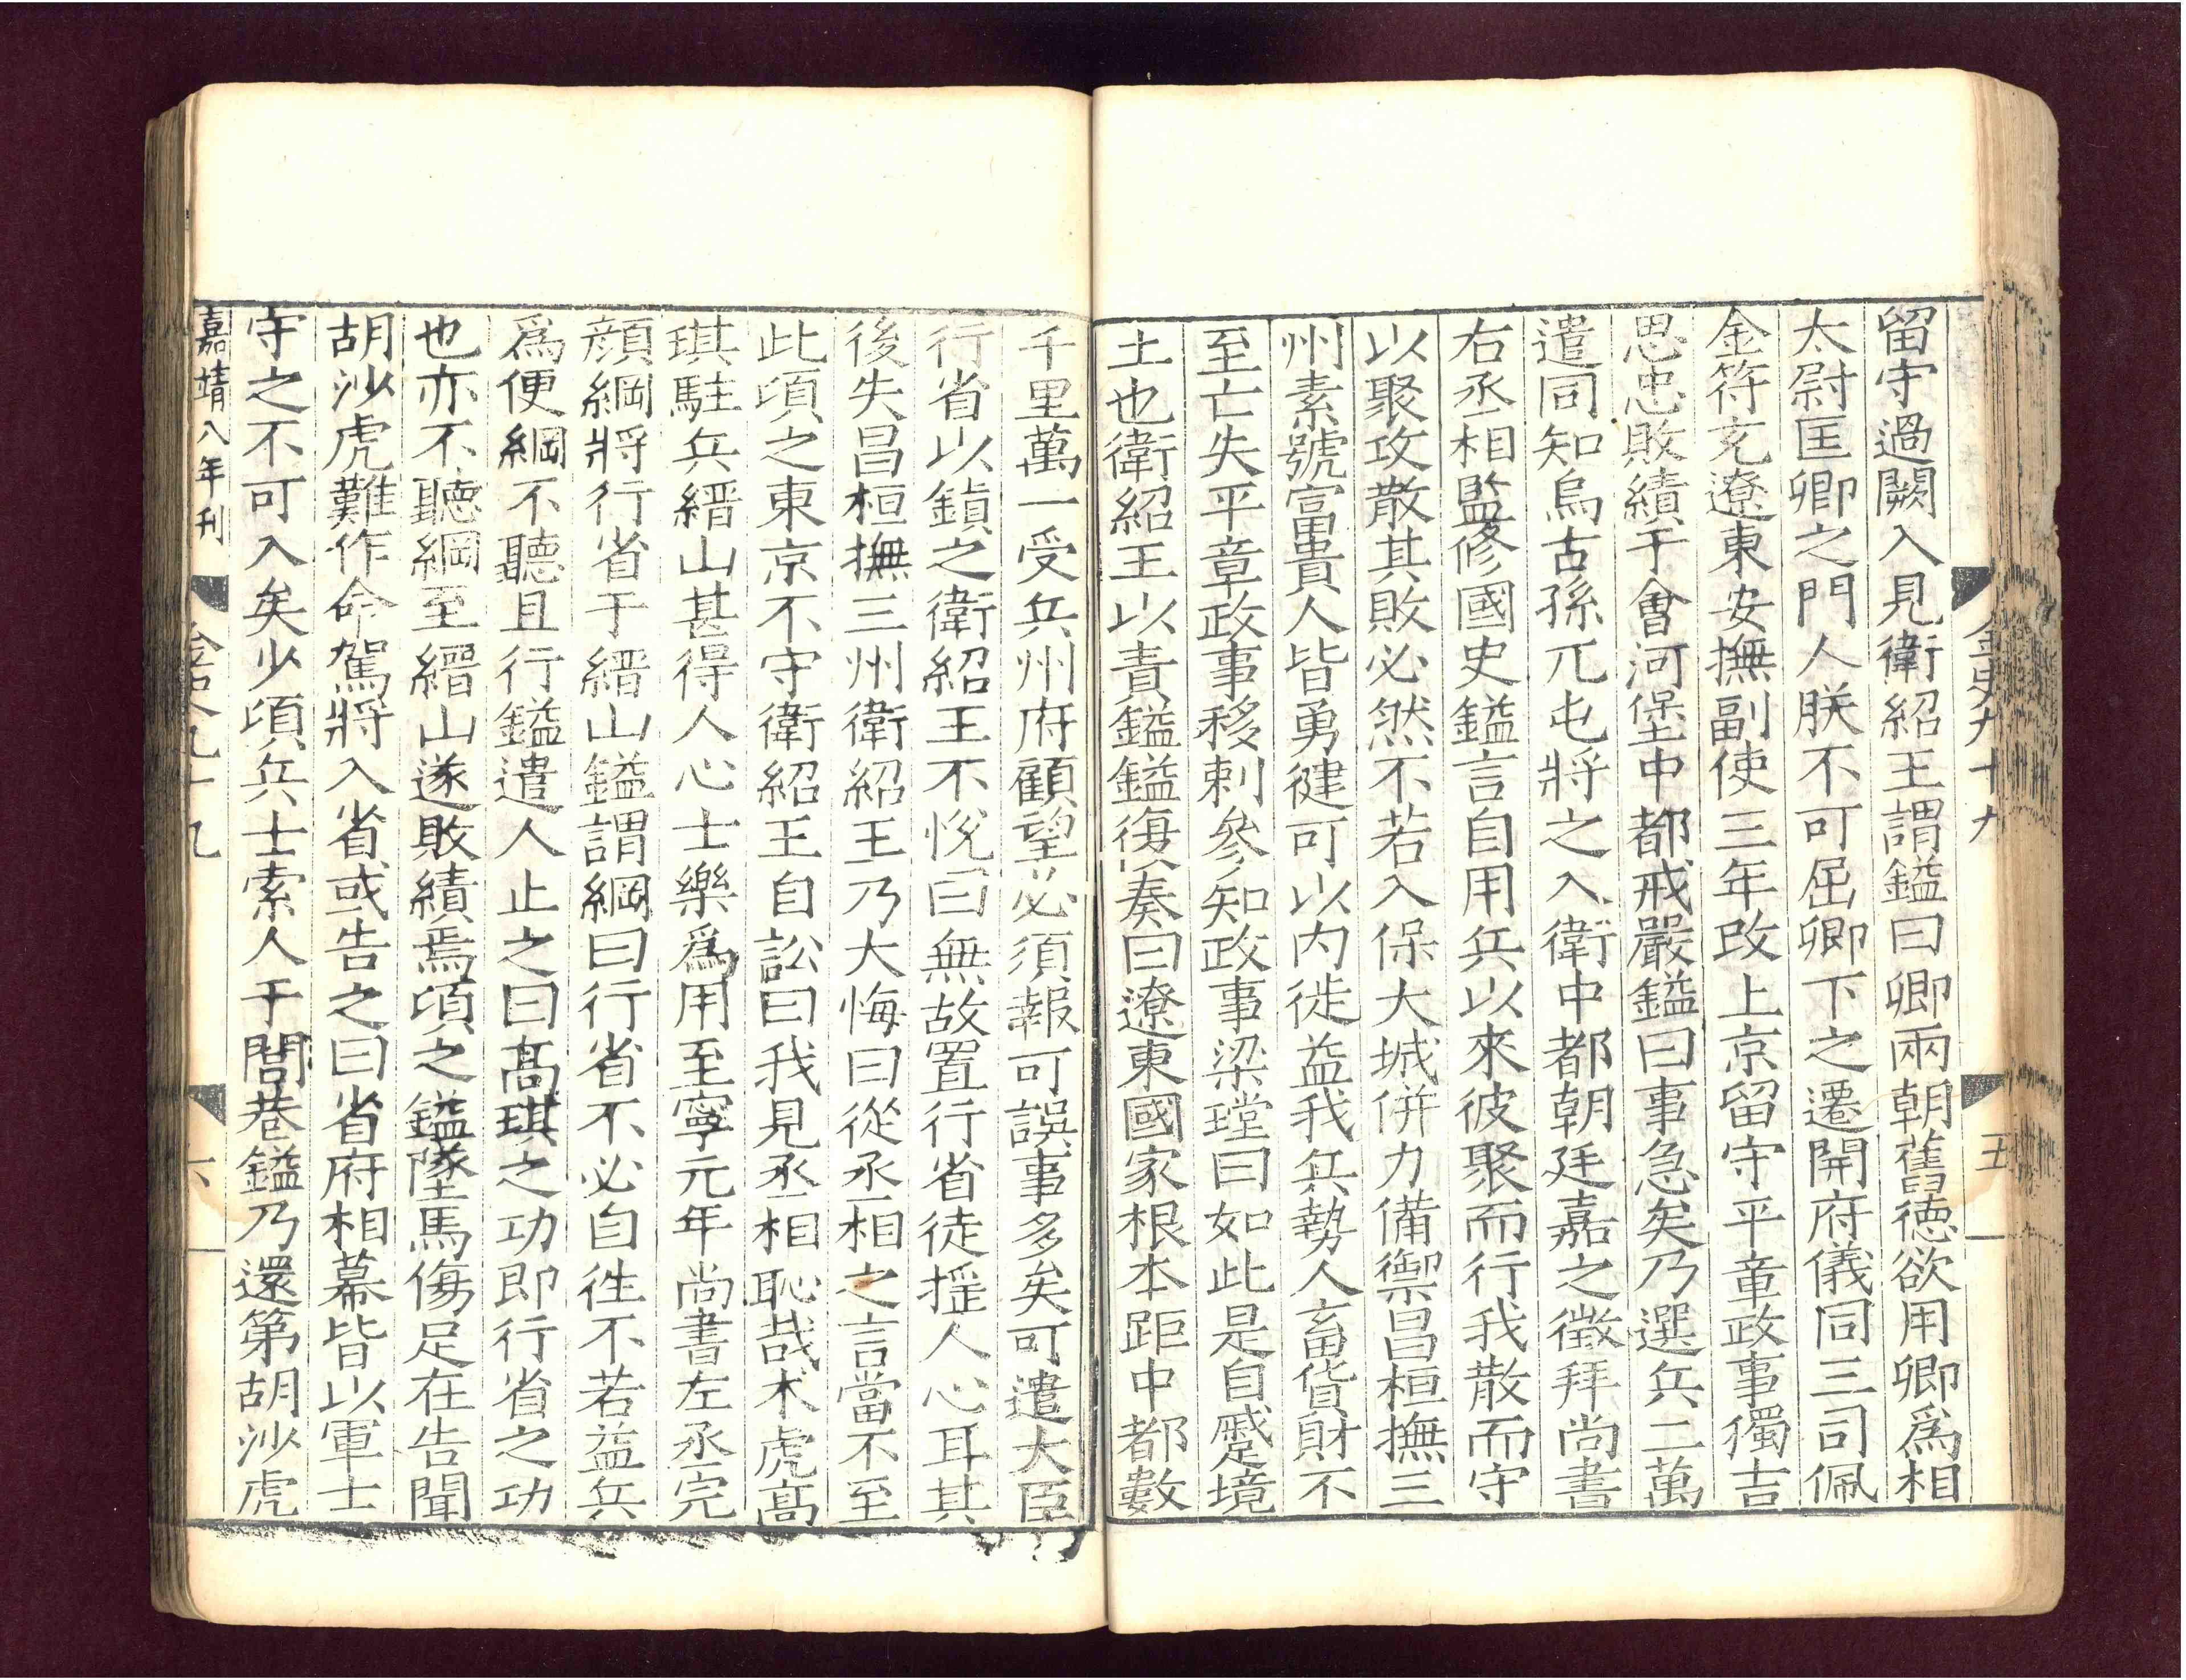 留守過闕入見衛紹王謂鎰曰卿兩朝舊徳欲用卿爲相
太尉匡卿之門人朕不可屈卿下之遷開府儀同三司佩
金符充遼東安撫副使三年改上京留守平章政事獨吉
思忠敗績于會河堡中都戒嚴鎰曰事急矣乃選兵二萬
遣同知烏古孫兀屯將之入衛中都朝廷嘉之徵拜尚書
右丞相監修國史鎰言自用兵以來彼聚而行我散而守
以聚攻散其敗必然不若入保大城併力備禦昌桓撫三
州素號富貴人皆勇健可以内徙益我兵勢人畜貨財不
至亡失平章政事移剌參知政事梁瑭曰如此是自蹙境
土也衛紹王以責鎰鎰復奏曰遼東國家根本距中都數
金史九十九
五
千里萬一受兵州府顧望必須報可誤事多矣可遣大臣
行省以鎮之衛紹王不悅曰無故置行省徒揺人心耳其
後失昌桓撫三州衛紹王乃大悔曰從丞相之言當不至
此頃之東京不守衛紹王自訟曰我見丞相恥哉术虎髙
琪駐兵縉山甚得人心士樂爲用至寧元年尚書左丞完
顔綱將行省于縉山鎰謂綱曰行省不必自徃不若益兵
爲便綱不聽且行鎰遣人止之曰髙琪之功即行省之功
也亦不聽綱至縉山遂敗績焉頃之鎰墜馬傷足在告聞
胡沙虎難作命駕將入省或告之曰省府相幕皆以軍士
守之不可入矣少頃兵士索人于閭巷鎰乃還第胡沙虎
嘉靖八年刊
金史九十九
六